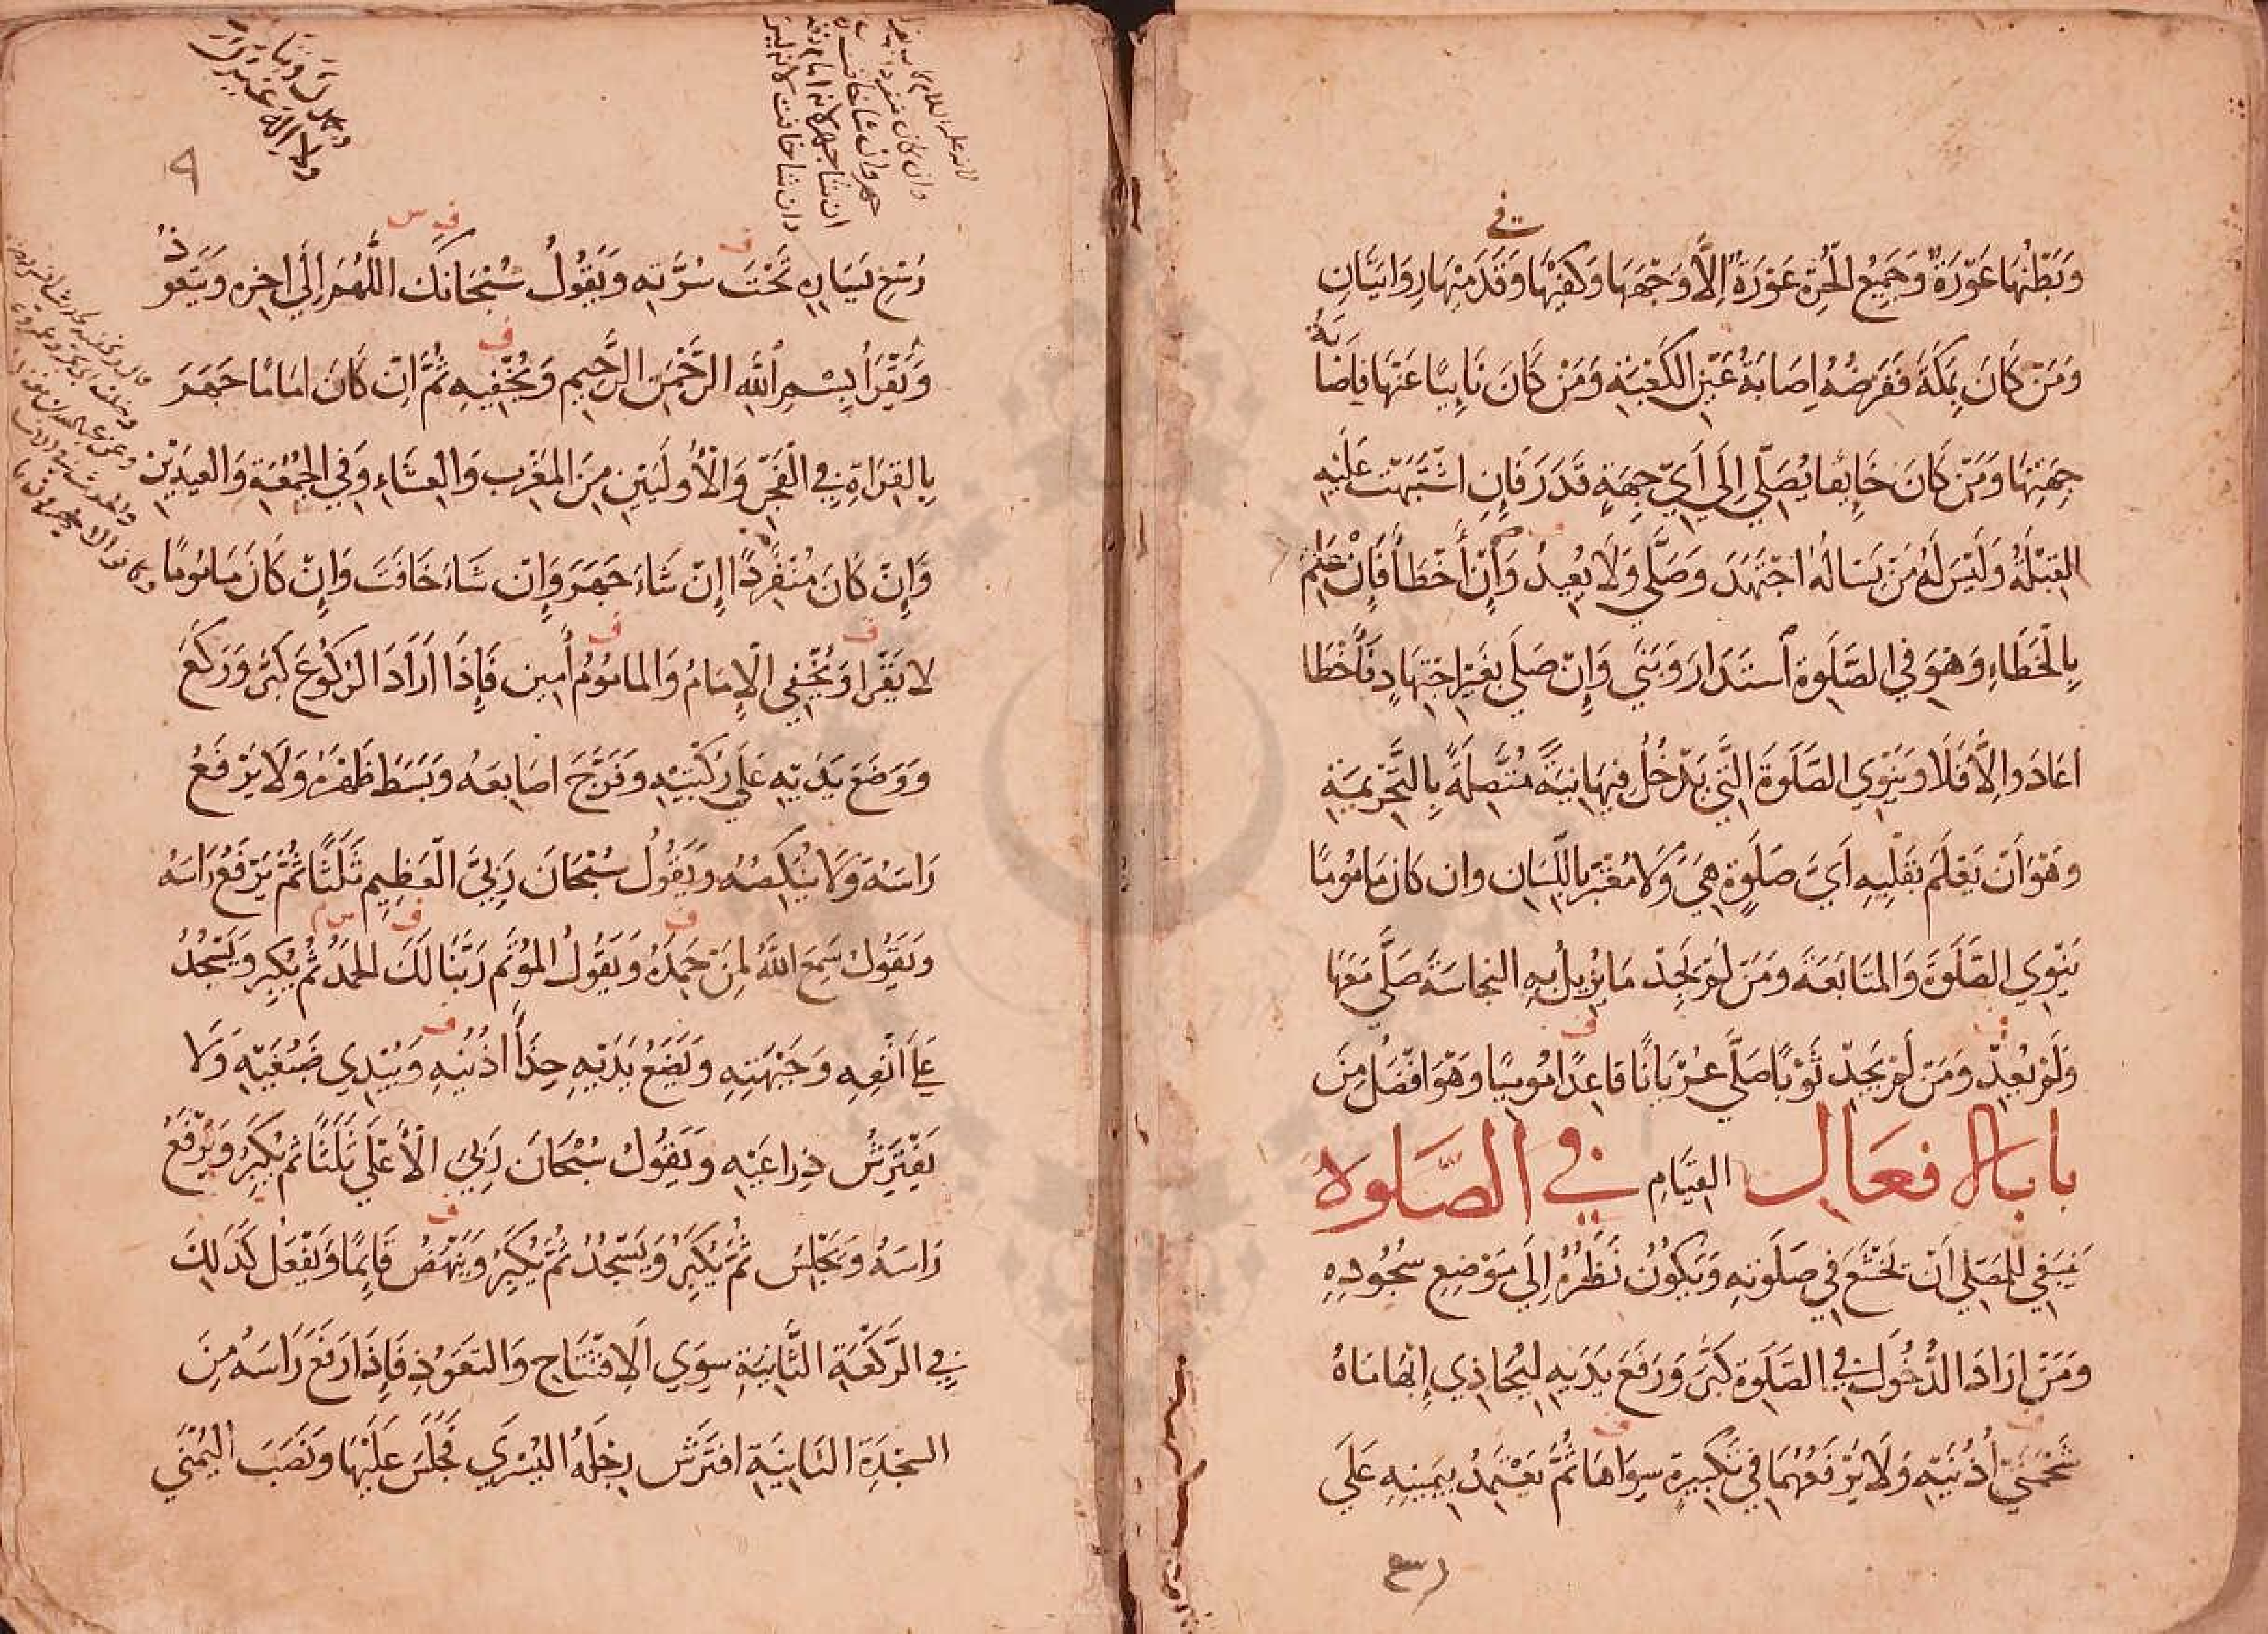 في
وَبَطْنُهَا عَوْرَةٌ وَجَمِيعُ الْحُرَّةِ عَوْرَةٌ اِلَّا وَجْهَهَا وَكَفَّيْهَا وَقَدَمَيْهَا رِوَايَتَانِ
وَمَنْ كَانَ بِمَكَّةَ فَفَرضُهُ اِصَابَةُ عَيْنِ الكَعْبَةِ وَمَنْ كَانَ نَايِيًا عَنْهَا فَاِصَابَةُ
جِهَتِهَا وَمَنْ كَانَ خَايِفًا يُصَلِّي اِلَى اَيِّ جِهَةٍ قَدَرَ فَاِنِ اشْتَبَهَتْ عَلَيْهِ
القِبْلَةُ وَلَيْسَ لَهُ مَنْ يَسَالُهُ اجْتَهَدَ وَصَلَّي وَلَا يُعِيدُ وَاِنْ أَخْطَأَ فَاِنْ عَلِمَ
بِالْخَطَاءِ وَهُوَ فِي الصَّلَوةِ اسْتَدَارَ وَبَنَي وَاِنْ صَلَي بِغَيْرِ اجْتِهَادٍ فَأَخْطَا
اَعَادَ وَاِلَّا فَلَا وَيَنْوِي الصَّلَوةَ الَّتِي يَدْخُلُ فِيهَا نِيَّةً مُتَّصِلَةً بِالتَّحْرِيمَةِ
وَهُوَ أَنْ يَعْلَمَ بِقَلْبِهِ اَيَّ صَلَوةٍ هِيَ وَلَا مُعْتَبَرَ بِاللِّسَانِ وان كَانَ مَامُومًا
يَنْوِي الصَّلَوةَ وَالمتَابَعَةَ وَمَنْ لَمْ يَجِدْ مَا يُزِيلُ بِهِ النجاسَةَ صَلَّى مَعَهَا
وَلَمْ يُعِدْ وَمَنْ لَمْ يَجِدْ ثَوْبًا صَلَّي عُرْيَانًا قَاعِدًا مُومِيًا وَهُوَ افْضَلُ مِنَ
القِيَامِ باب الافعال في الصلوة
يَنْبَغِي لِلْمُصَلِّي اَنْ يَخْشَعَ فِي صَلَوتِهِ وَيَكُونُ نَظَرُهُ اِلَي مَوْضِعِ سُجُودِهِ
وَمَنْ اَرَادَ الدُّخُولَ فِي الصَّلَوةِ كَبَّرَ وَرَفَعَ يَدَيْهِ لِيُحَاذِي اِبْهَامَاهُ
شَحْمَتَي أُذُنَيْهِ وَلَا يَرْفَعُهُمَا فِي تَكْبِيرَةٍ سِوَاهَا ثُمَّ يَعْتَمِدُ بِيَمِينِهِ عَلَي
٩
رُسْغِ يَسَارِهِ تَحْتَ سُرَّتِهِ وَيَقُولُ سُبْحَانَكَ اللَّهُمَّ اِلَي اخِرِهِ وَيَتَعَوَّذُ
وَيَقْرَأُ بِسْمِ اللَّهِ الرَّحْمَنِ الرَّحِيمِ وَيُخْفِيهِ ثُمَّ اِنْ كَانَ اِمَامًا جَهَرَ
بِالقِرَاةِ فِي الْفَجْرِ وَالْأُولَيَيْنِ مِنَ المَغْرِبِ وَالْعِشَاءِ وَفِي الجُمُعَةِ وَالعِيدَيْنِ
وَاِنْ كَانَ مُنْفَرِدًا اِنْ شَاءَ جَهَرَ وَاِنْ شَاءَ خَافَتَ وَاِنْ كَانَ مَامُومًا
لا يَقْرَا وَيُخْفِي الْاِمَامُ وَالمامُومُ اٰمِين فَاِذَا اَرَادَ الرُّكُوعَ كَبَّرَ وَرَكَعَ
وَوَضَعَ يَدَيْهِ عَلَي رُكْبَتَيْهِ وَفَرَّجَ اصَابِعَهُ وَبَسَطَ ظَهْرَهُ وَلَا يَرْفَعُ
رَاسَهُ وَلَا يُنَكِّسُهُ وَيَقُولُ سُبْحَانَ رَبِّيَ الْعَظِيمِ ثَلَثًا ثُمَّ يَرْفَعُ رَاسَهُ
وَيَقُولُ سَمِعَ اللَّهُ لِمَنْ حَمِدَهُ وَيَقُولُ المُوتَمُّ رَبَّنَا لَكَ الحَمْدُ ثُمَّ يُكَبِّرُ وَيَسْجُدُ
عَلَي اَنْفِهِ وَجَبْهَتِهِ وَيَضَعُ يَدَيْهِ حِذَاَ اُذُنَيْهِ وَيُبْدِي ضَبُعَيْهِ وَلَا
يَفْتَرِشُ ذِرَاعَيْهِ وَيَقُولُ سُبْحَانَ رَبِّيَ الْأَعْلَي ثَلَثًا ثُمَّ يُكَبِّرُ وَيَرْفَعُ
رَاسَهُ وَيَجْلِسُ ثُمَّ يُكَبِّرُ وَيَسْجُدُ ثُمَّ يُكَبِّرُ وَيَنْهَضُ قَايِمًا وَيَفْعَلُ كَذَلِكَ
فِي الرَّكْعَةِ الثَّانِيَةِ سِوَي الاِفْتِتَاحِ وَالتعَوُّذِ فَاِذَا رَفَعَ رَاسَهُ مِنَ
السَّجْدَةِ الثَّانِيَةِ افْتَرَشَ رِجْلَهُ اليُسْرَي فَجَلَسَ عَلَيْهَا وَنَصَبَ اليُمْنَي
ولا اله غيرك
وان شا خافت